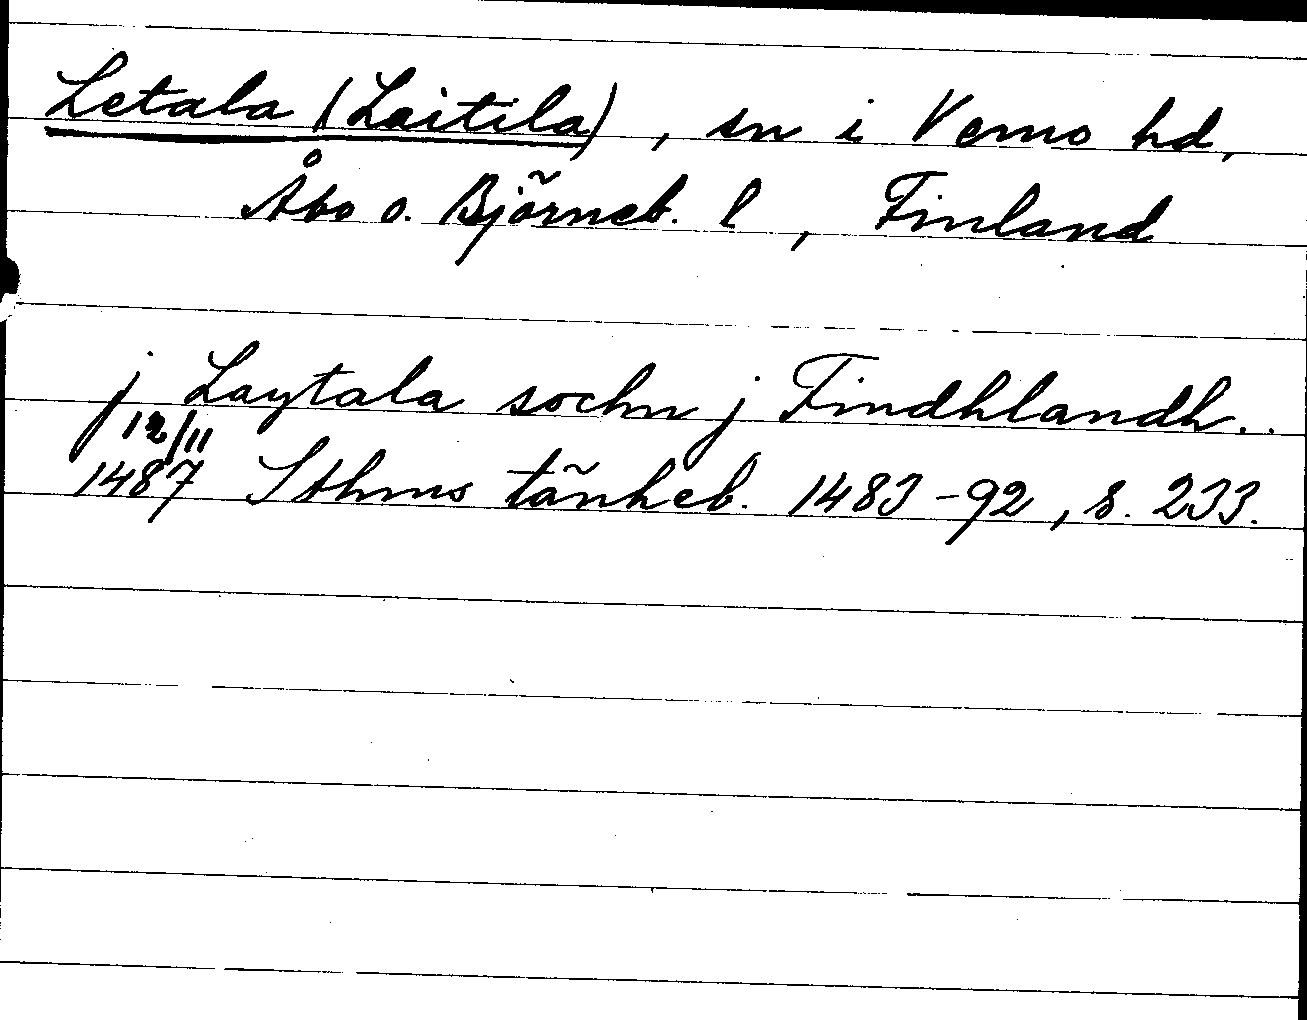 Letala (Laitila), sn i Vemo hd,
Åbo o. Björneb. l, Finland
j Laytala sochn j Findhlandh..
12/11
1487 Sthms tänkeb. 1483-92, s. 233.